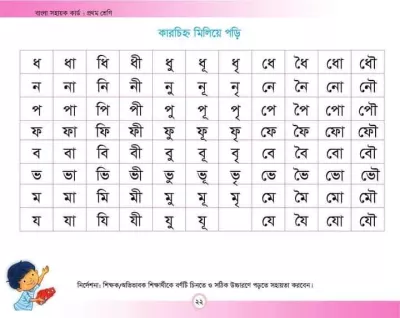 বাংলা সহায়ক কার্ড : প্রথম শ্রেণি
কারচিহ্ন মিলিয়ে পড়ি
ধ ধা ধি ধী ধু ধূ ধৃ ধে ধৈ ধো ধৌ
ন না নি নী নু নূ নৃ নে নৈ নো নৌ
প পা পি পী পু পূ পৃ পে পৈ পো পৌ
ফ ফা ফি ফী ফু ফূ ফৃ ফে ফৈ ফো ফৌ
ব বা বি বী বু বূ বৃ বে বৈ বো বৌ
ভ ভা ভি ভী ভু ভূ ভৃ ভে ভৈ ভো ভৌ
ম মা মি মী মু মূ মৃ মে মৈ মো মৌ
য যা যি যী যু যূ যে যৈ যো যৌ
নির্দেশনা: শিক্ষক/অভিভাবক শিক্ষার্থীকে বর্ণটি চিনতে ও সঠিক উচ্চারণে পড়তে সহায়তা করবেন।
২২